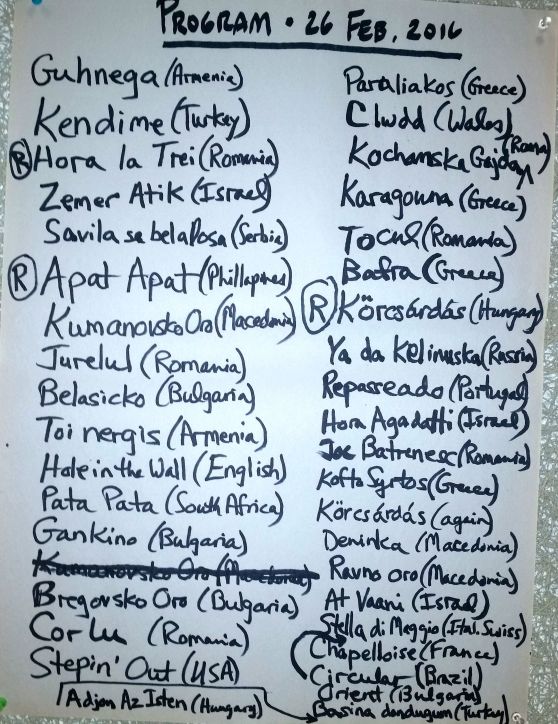 PROGRAM • 26 FEB, 2016
Guhnega (Armenia)
Kendime (Turkey)
R Hora la Trei (Romania)
Zemer Atik (Israel)
Savila se bela Rosa (Serbia)
R Apat Apat (Phillapines)
Kumanovsko Oro (Macedonia)
Jurelul (Romania)
Belasicko (Bulgaria)
Toi nergis (Armenia)
Hole in the Wall (English)
Pata Pata (South Africa)
Gankino (Bulgaria)
Kumanovsko Oro (Macedonia)
Bregovsko Oro (Bulgaria)
Corlu (Romania)
Stepin' Out (USA)
Adjon Az Isten (Hungary)
Paraliakos (Greece)
Clwdd (Wales)
Kochanska Gajda (Roma)
Karagouna (Greece)
Tocul (Romania)
Baofra (Greece)
R Körcsárdás (Hungary)
Ya da Kelinuska (Russia)
Repasseado (Portugal)
Hora Agadatti (Israel)
Joc Batrenesc (Romania)
Kofto Syrtos (Greece)
Körcsárdás (again)
Deninka (Macedonia)
Ravno oro (Macedonia)
At Vaani (Israel)
Stella di Meggio (Ital. Swiss)
Chapelloise (France)
Circular (Brazil)
Orient (Bulgaria)
Basina dondugum (Turkey)